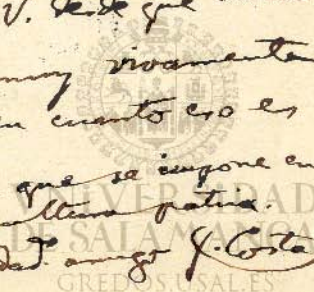 V. desde que
muy vivamente
en cuanto eso es
que se impone en
cultura patria.
amigo J. Costa
UNIVERSIDAD
DE SALAMANCA
GREDOS.USAL.ES